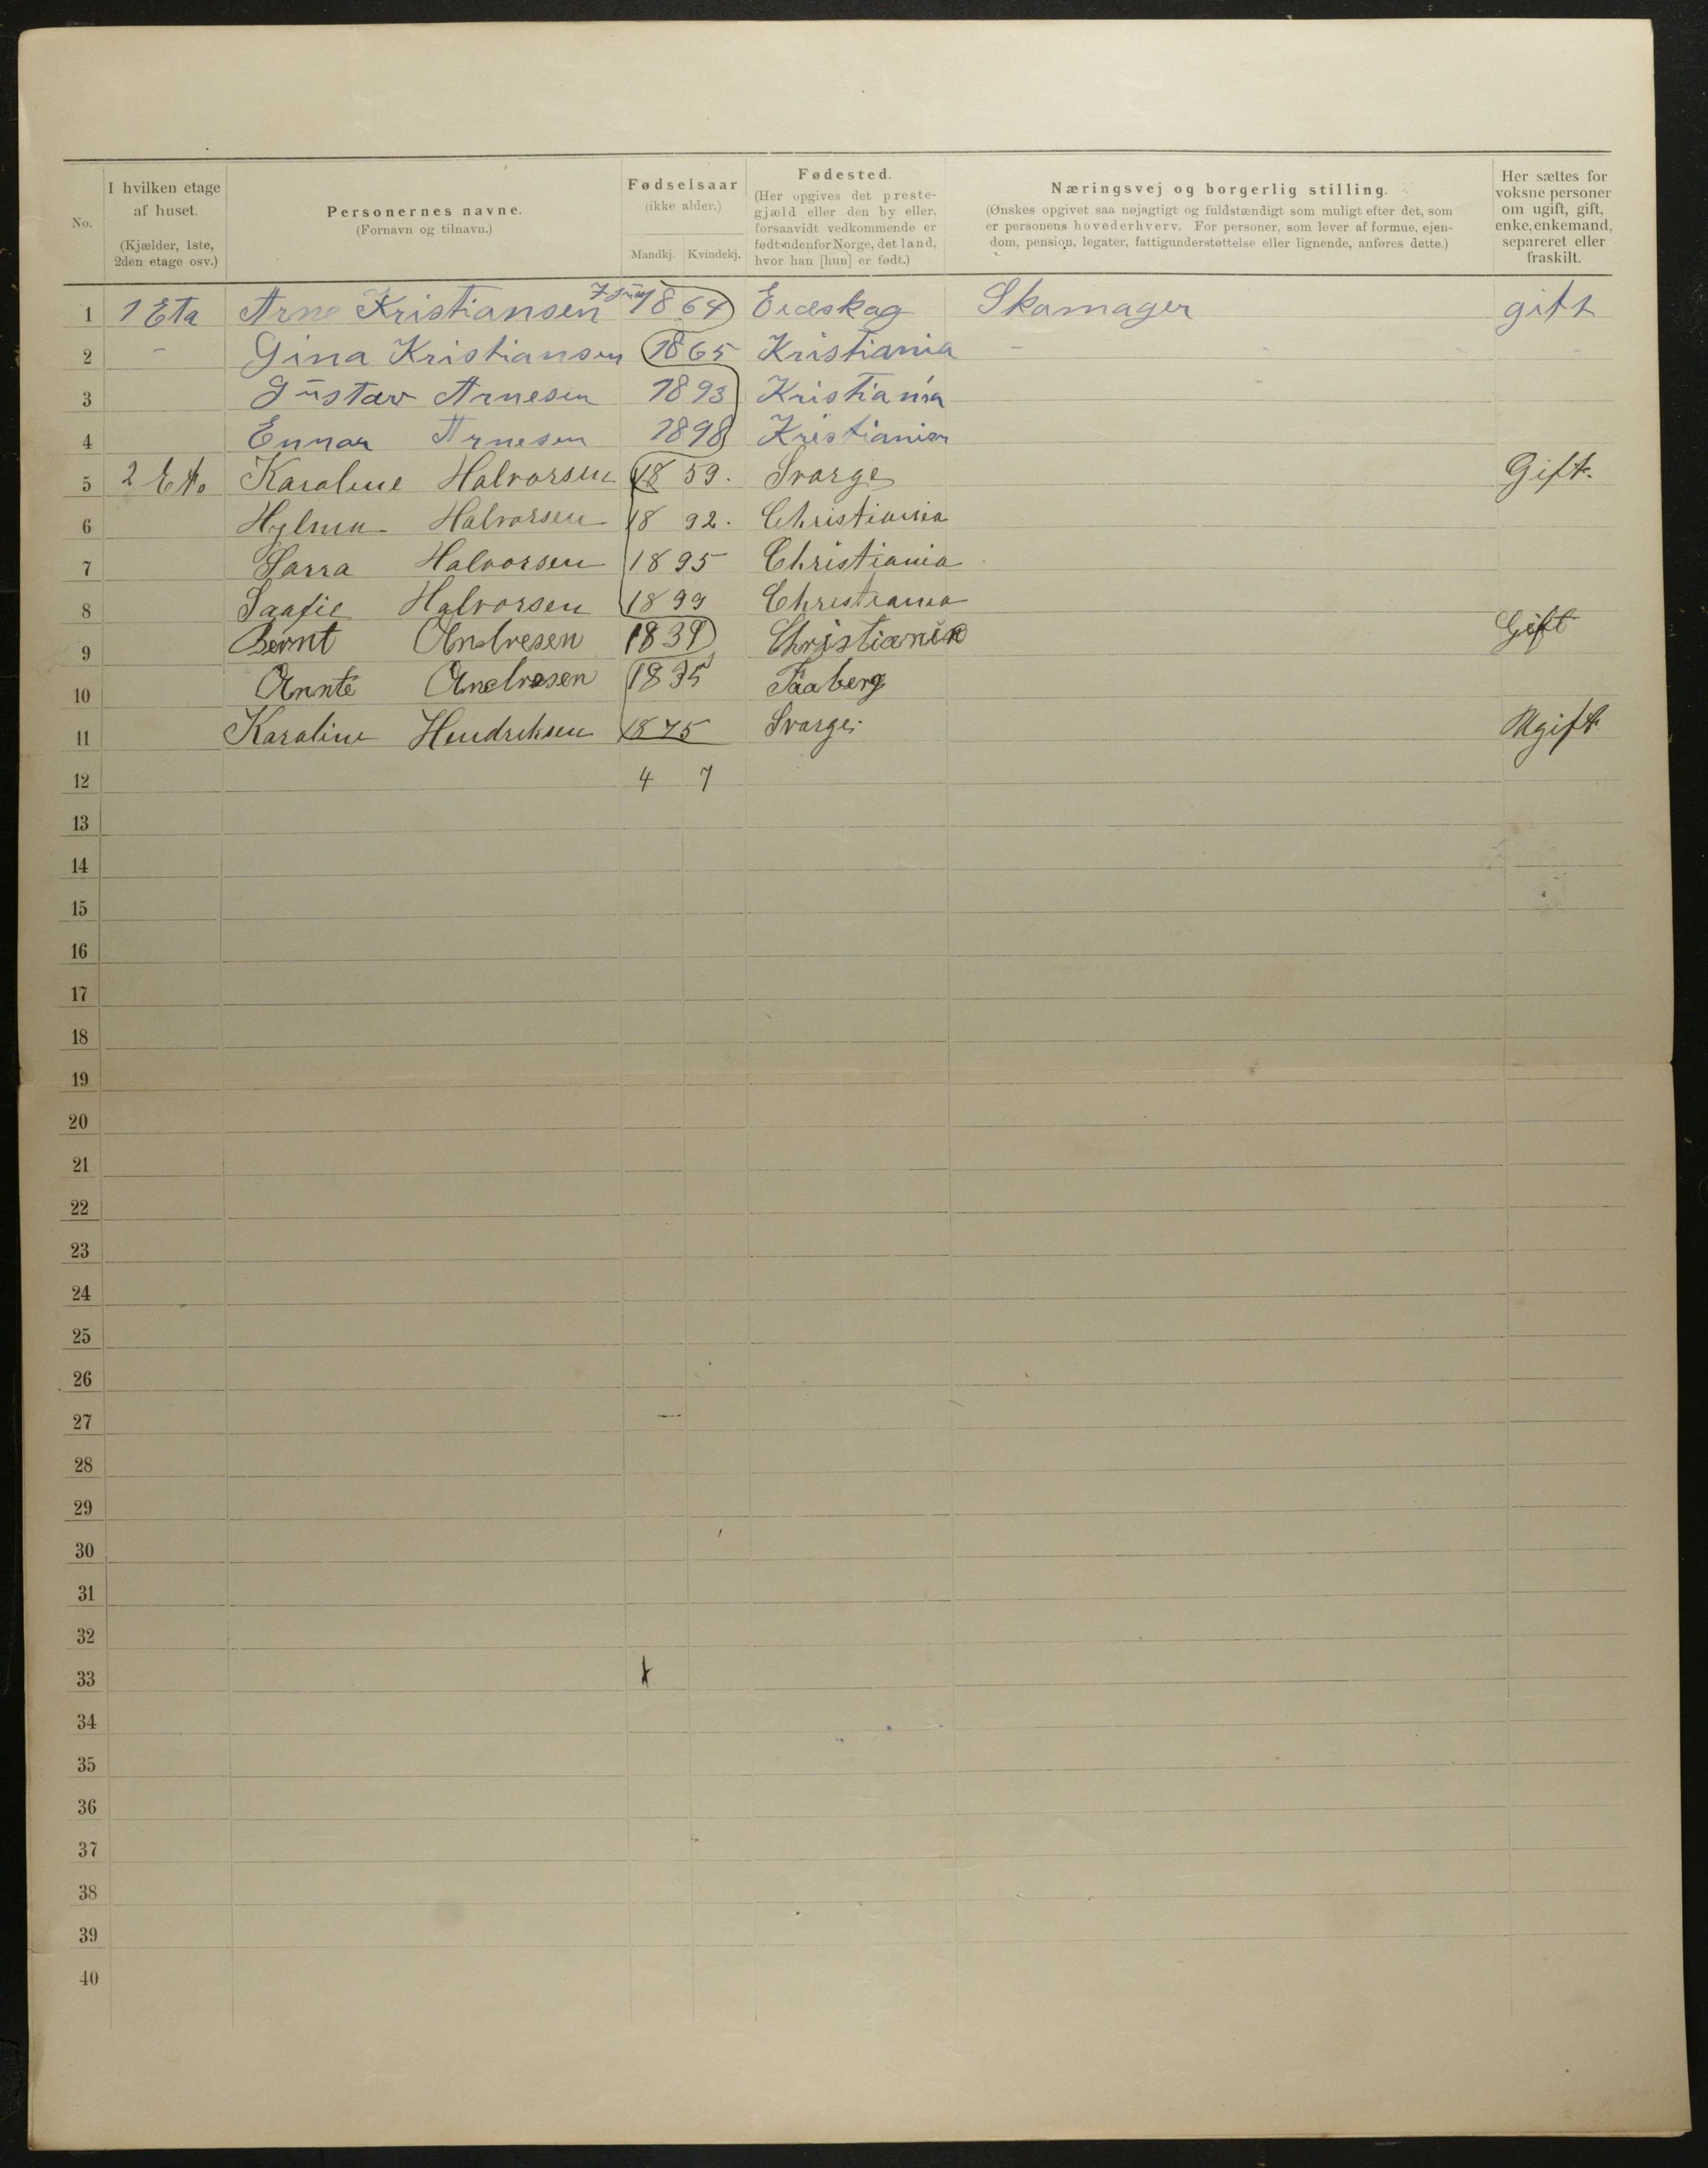 No.
I hvilken etage
af huset.
(Kjælder, 1ste,
2den etage osv.)
Personernes navne.
(Fornavn og tilnavn.)
Fødselsaar
(ikke alder.)
Mandkj. Kvindekj.
Fødested.
(Her opgives det preste-
gjæld eller den by eller,
forsaavidt vedkommende er
født udenfor Norge, det land,
hvor han [hun] er født.)
Næringsvej og borgerlig stilling.
(Ønskes opgivet saa nøjagtigt og fuldstændigt som muligt efter det, som
er personens hovederhverv. For personer, som lever af formue, ejen-
dom, pension, legater, fattigunderstøttelse eller lignende, anføres dette.)
Her sættes for
voksne personer
om ugift, gift,
enke, enkemand,
separeret eller
fraskilt.
1 1 Eta Arne Kristiansen 1864 Eidskog Skomager gift
2 - Gina Kristiansen 1865 Kristiania -
3 Gustav Arnesen 1893 Kristiania
4 Ennar Arnesen 1898 Kristiania
5 2 Eta Karoline Halvorsen 1859. Svarge Gift.
6 Hylma Halvorsen 1892. Christiania
7 Sarra Halvorsen 1895 Christiania
8 Saafie Halvorsen 1899 Christiania
9 Bernt Andresen 1839 Christiania Gift
10 Annte Andresen 1835 Faaberg
11 Karoline Hendriksen 1875 Svarge. Ugift
12 4 7
13
14
15
16
17
18
19
20
21
22
23
24
25
26
27
28
29
30
31
32
33
34
35
36
37
38
39
40